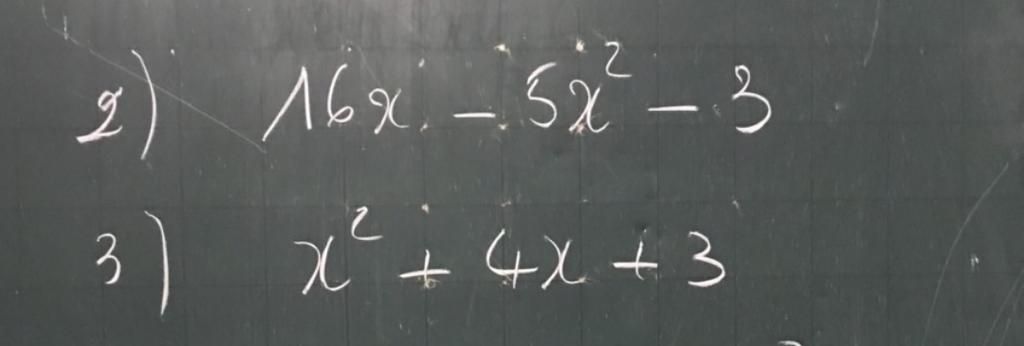 2) 16x - 5x² - 3
3) x² + 4x + 3